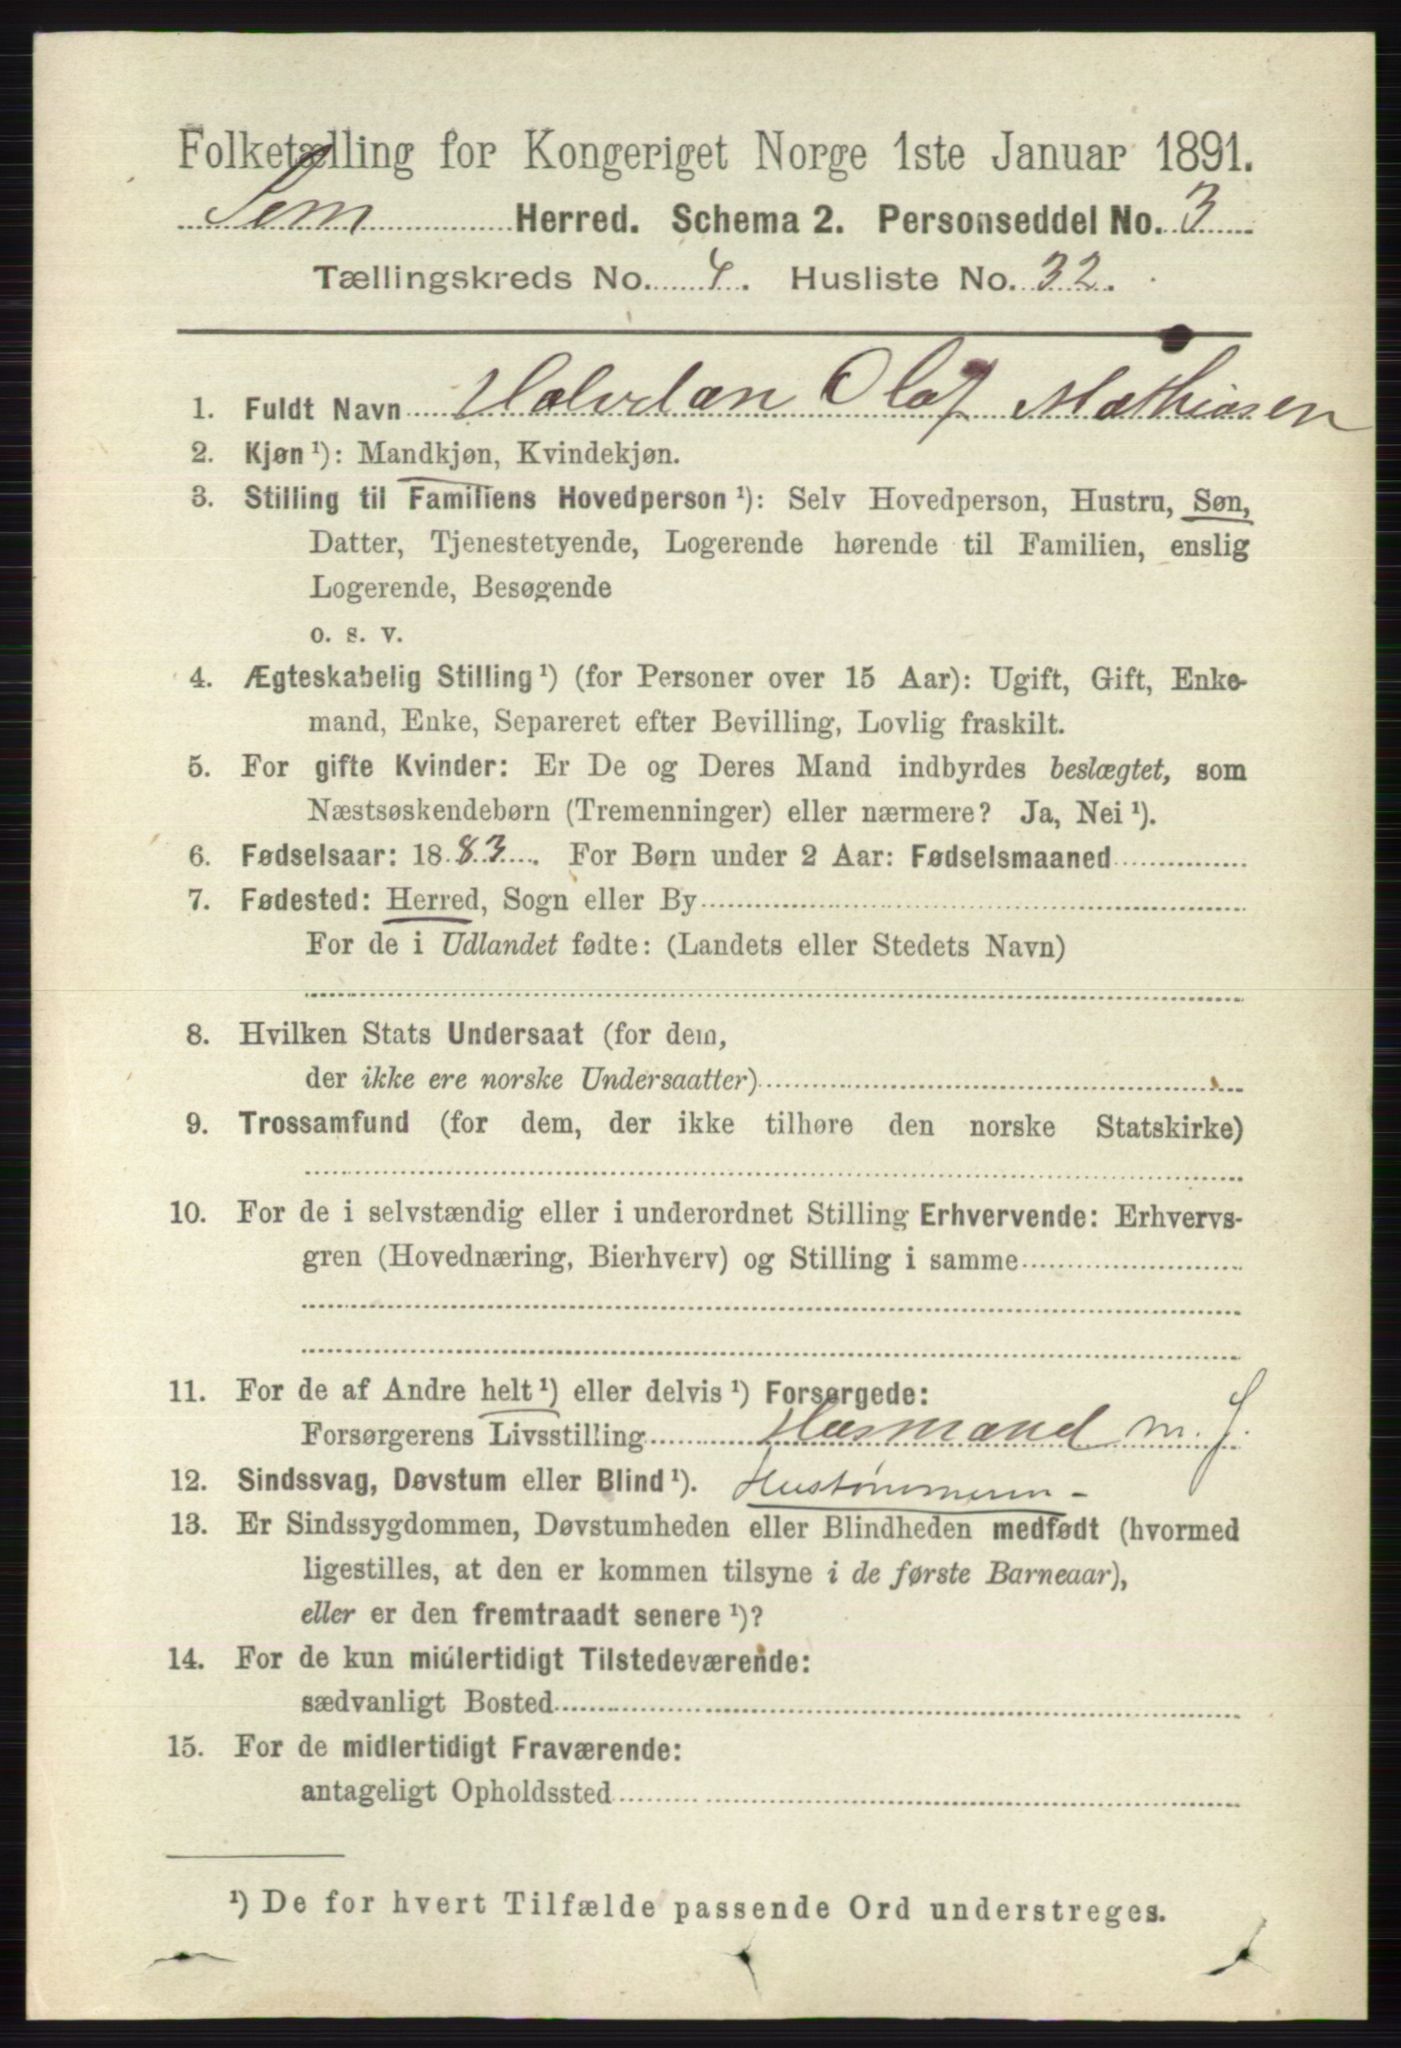 Folketælling for Kongeriget Norge 1ste Januar 1891.
Sem Herred. Schema 2. Personseddel No. 3
Tællingskreds No. 4. Husliste No. 32.
1. Fuldt Navn Halvdan Olaf Mathiasen
2. Kjøn ¹): Mandkjøn, Kvindekjøn.
3. Stilling til Familiens Hovedperson ¹): Selv Hovedperson, Hustru, Søn,
Datter, Tjenestetyende, Logerende hørende til Familien, enslig
Logerende, Besøgende
o. s. v.
4. Ægteskabelig Stilling ¹) (for Personer over 15 Aar): Ugift, Gift, Enke-
mand, Enke, Separeret efter Bevilling, Lovlig fraskilt.
5. For gifte Kvinder: Er De og Deres Mand indbyrdes beslægtet, som
Næstsøskendebørn (Tremenninger) eller nærmere? Ja, Nei ¹).
6. Fødselsaar: 1883. For Børn under 2 Aar: Fødselsmaaned
7. Fødested: Herred, Sogn eller By
For de i Udlandet fødte: (Landets eller Stedets Navn)
8. Hvilken Stats Undersaat (for dem,
der ikke ere norske Undersaatter)
9. Trossamfund (for dem, der ikke tilhøre den norske Statskirke)
10. For de i selvstændig eller i underordnet Stilling Erhvervende: Erhvervs-
gren (Hovednæring, Bierhverv) og Stilling i samme
11. For de af Andre helt ¹) eller delvis ¹) Forsørgede:
Forsørgerens Livsstilling Husmand m. J.
12. Sindssvag, Døvstum eller Blind ¹). Hustømmerm-
13. Er Sindssygdommen, Døvstumheden eller Blindheden medfødt (hvormed
ligestilles, at den er kommen tilsyne i de første Barneaar),
eller er den fremtraadt senere ¹)?
14. For de kun midlertidigt Tilstedeværende:
sædvanligt Bosted
15. For de midlertidigt Fraværende:
antageligt Opholdssted
¹) De for hvert Tilfælde passende Ord understreges.